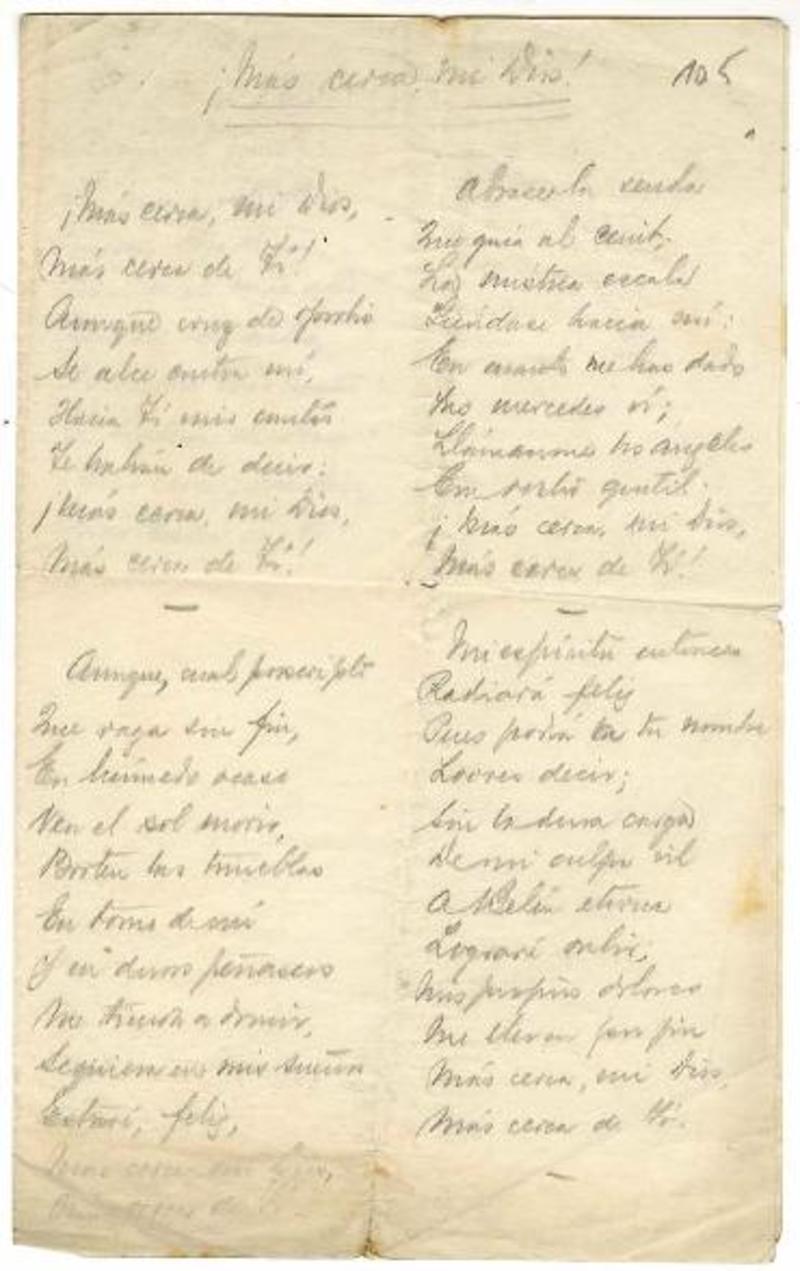 ¡Más cerca, mi Dios!
105
¡Más cerca, mi Dios,
Más cerca de Ti!
Aunque cruz de oprobio
Se alce contra mí,
Hacia Ti mis cantos
Te habrán de decir:
¡Más cerca, mi Dios,
Más cerca de Ti!
Aunque, cual proscripto
Que vaga sin fin,
En húmedo ocaso
Vea el sol morir,
Broten las tinieblas
En torno de mí
Y en duros peñascos
Me tienda a dormir,
Siquiera en mis sueños
Estaré, feliz,
Más cerca, mi Dios,
Más cerca de
la senda
Que guía al cenit,
La mística escala
Tiéndase hacia mí:
En cuanto me has dado
Tus mercedes vi;
Llámanme tus ángeles
Con verbo gentil.
¡Más cerca, mi Dios,
Más cerca de Ti!
Mi espíritu entonces
Radiará feliz
Pues podrá en tu nombre
Loores decir;
Sin la dura carga
De mi culpa vil
A Betel eterna
Lograré subir;
Mis propios dolores
Me llevan por fin
Más cerca, mi Dios,
Más cerca de Ti.